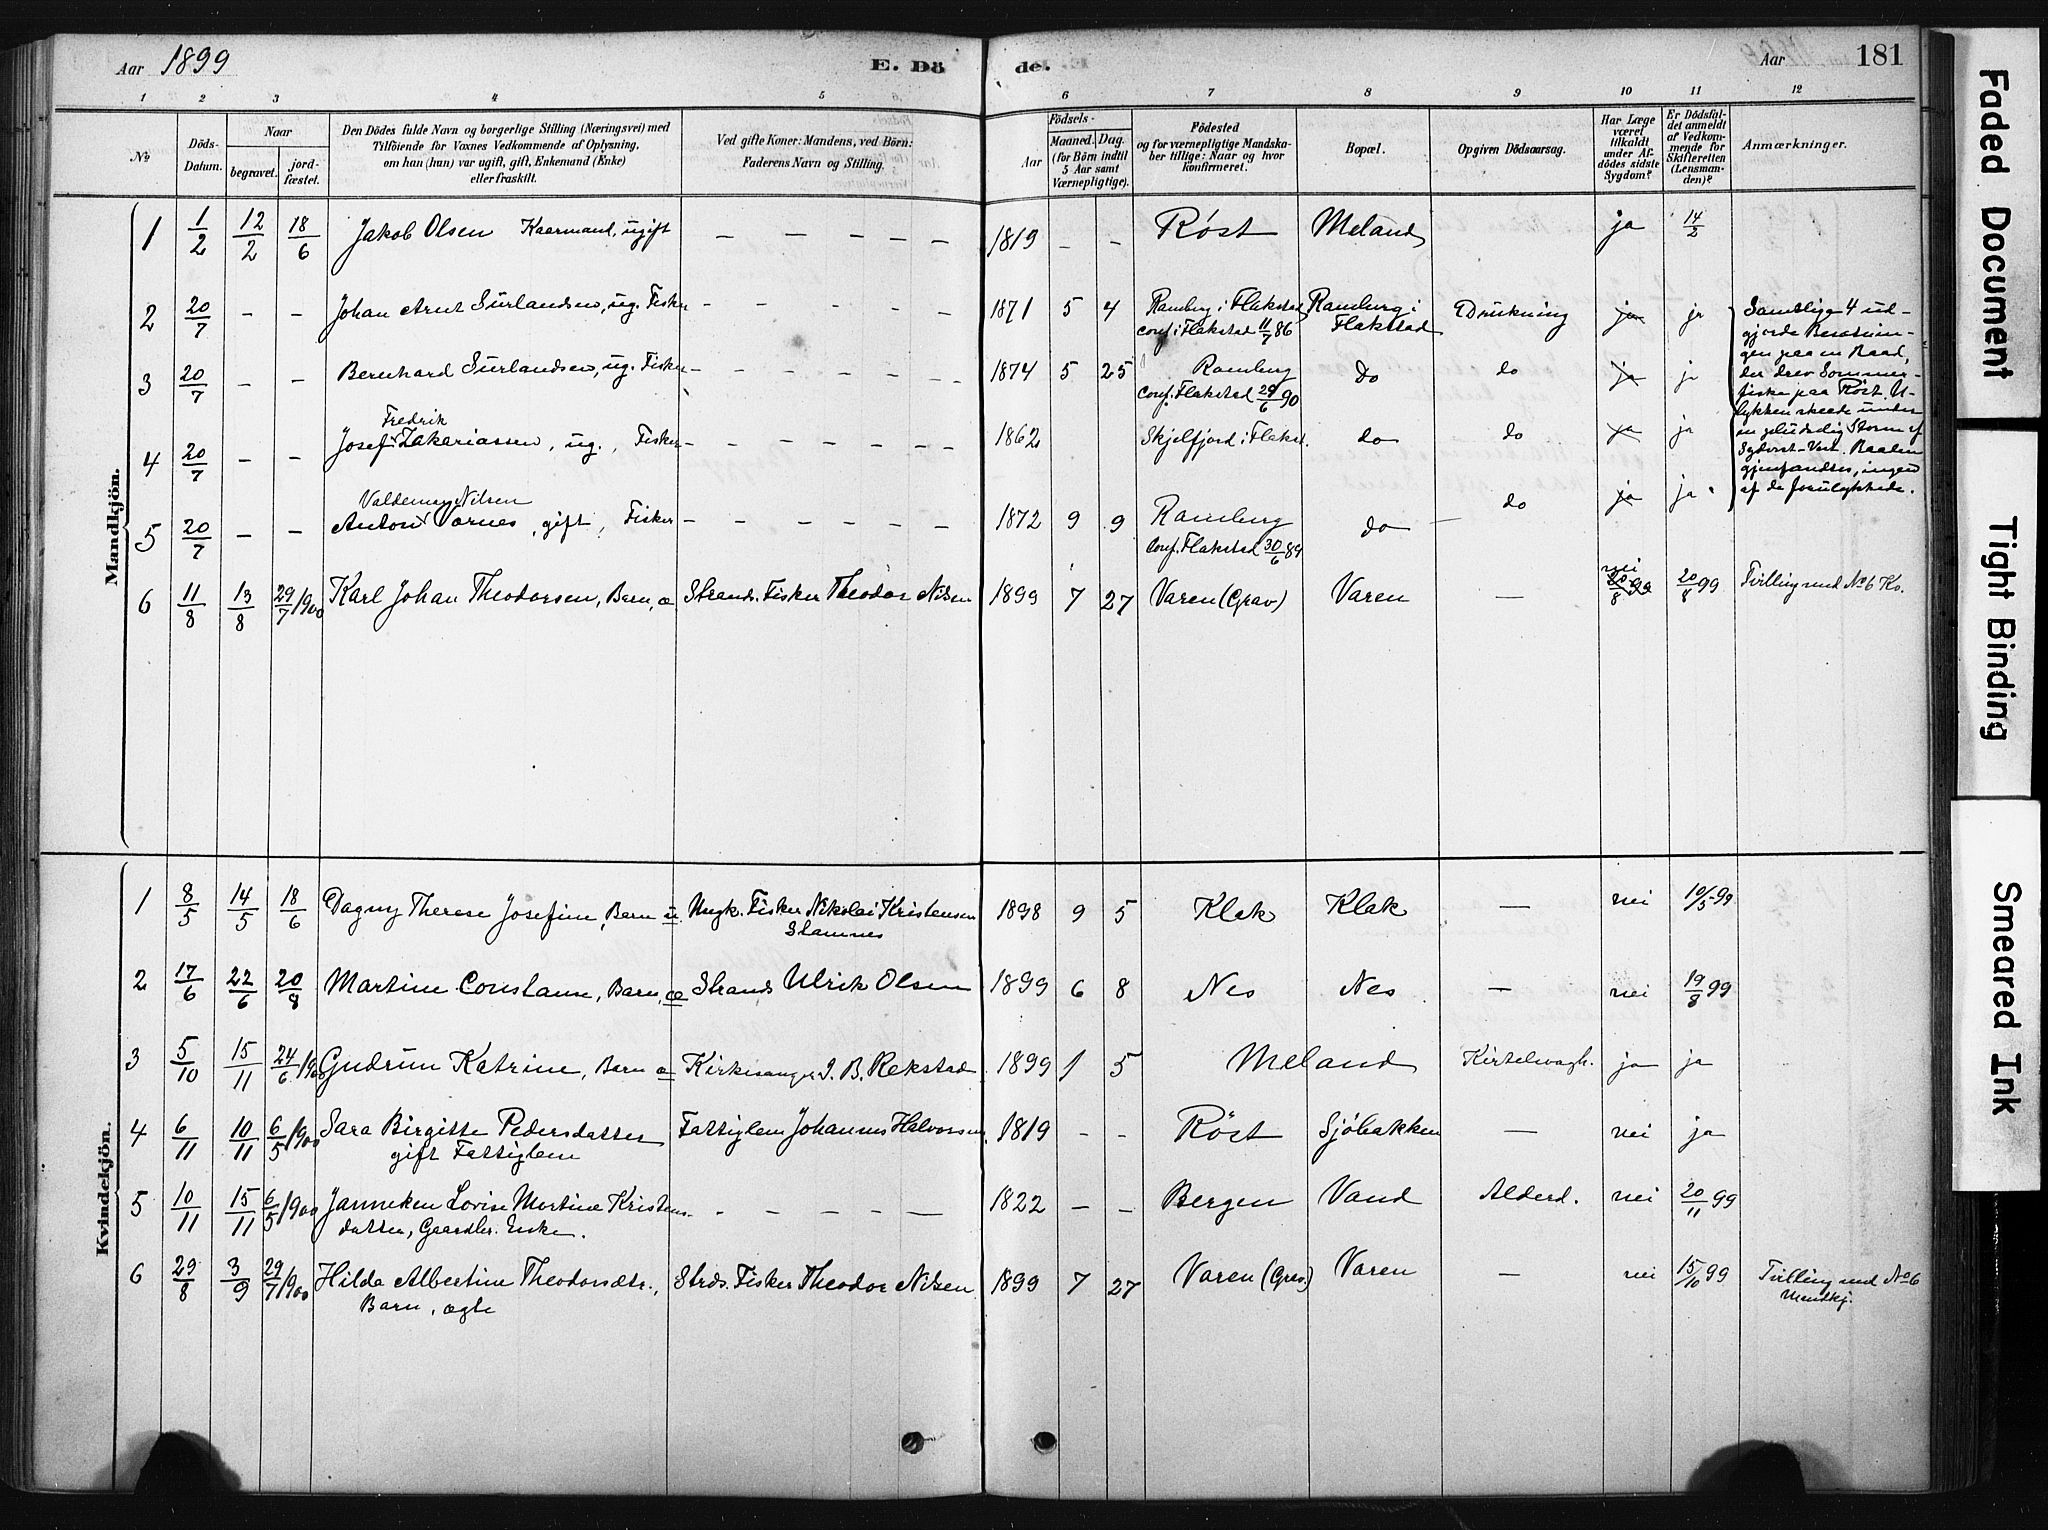 Aar 1899 E. Dö de. Aar 181
1 2 3 4 5 6 7 8 9 10 11 12
No
Döds-Datum.
Naar
begravet. jord-fæstet.
Den Dödes fulde Navn og borgerlige Stilling (Næringsvei) med
Tilföiende for Voxnes Vedkommende af Oplysning,
om han (hun) var ugift, gift, Enkemand (Enke)
eller fraskilt.
Ved gifte Koner: Mandens, ved Börn:
Faderens Navn og Stilling.
Födsels-
Aar Maaned. Dag.
(for Börn indtil
5 Aar samt
Værnepligtige).
Födested
og for værnepligtige Mandska-
ber tillige: Naar og hvor
konfirmeret.
Bopæl.
Opgiven Dödsaarsag.
Har Læge
været
tilkaldt
under Af-
dödes sidste
Sygdom?
Er Dödsfal-
det anmeldt
af Vedkom-
mende for
Skifteretten
(Lensman-
den)?
Anmærkninger.
Mandkjön.
1 1/2 12/2 18/6 Jakob Olsen Kaarmand, ugift — — — — — 1819 - - Røst Meland ja 14/2
2 20/7 - - Johan Arnt Surlandsen, ug. Fisker - - - - - 1871 5 4 Ramberg i Flakstad Ramberg i Flakstad Drukning ja ja
conf. i Flakstad 11/7 86
3 20/7 - - Bernhard Surlandsen, ug. Fisker - - - - - 1874 5 25 Ramberg do do ja ja
conf. Flakstad 29/6 90
Fredrik
4 20/7 - - Josef Zakariassen, ug., Fisker - - - - - 1862 Skjelfjord i Flakst. do do ja ja
Valdemar Nilsen
5 20/7 - - Anton Værnes, gift, Fisker - - - - - 1872 9 9 Ramberg do do ja ja
conf. Flakstad 30/6 89
Samtlige 4 ud-
gjorde Besætnin-
gen paa en Baad,
der drev Sommer-
fiske paa Røst. U-
lykken skeede under
en pludselig Storm af
Sydvest-Vest. Baaden
gjenfandtes, ingen
af de forulykkede.
6 11/8 13/8 29/7/1900 Karl Johan Theodorsen, Barn, æ Strands. Fisker Theodor Nilsen 1899 7 27 Varen (Grav) Varen — nei 20/8 99 20/8 99 Tvilling med No 6 Kv.
Kvindekjön.
1 8/5 14/5 18/6 Dagny Therese Josefine, Barn u Ungk. Fisker Nikolai Kristensen 1898 9 5 Klak Klak — nei 10/5-99
Stamnes
2 17/6 22/6 20/8 Martine Constanse, Barn, æ Strands Ulrik Olsen 1899 6 8 Nes Nes — nei 19/8 99
3 5/10 15/11 24/6/1900 Gudrun Katrine, Barn æ Kirkesanger J. B. Rekstad 1899 1 5 Meland Kirtelsvagh. ja ja
4 6/11 10/11 6/5/1900 Sara Birgitte Pedersdatter Fattiglem Johannes Halvorsen 1819 - - Røst Sjöbakken — nei ja
gift Fattiglem
5 10/11 15/11 6/5/1900 Janneken Lovise Martine Kristens- - - - - — 1822 - - Bergen Vand Alderd. nei 20/11 99
datter, Gaardbr. Enke.
6 29/8 3/9 29/7/1900 Hilda Albertine Theodorsdtr., Strds. Fisker Theodor Nilsen 1899 7 27 Varen (Grav) Varen — nei 15/10 99 Tvilling med No 6
Barn, ægte Mandkj.
Faded Document
Tight Binding
Smeared Ink